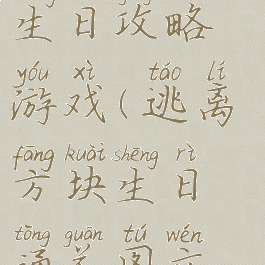 生日攻略
yóu xì táo lí
游戏(逃离
fāng kuài shēng rì
方块生日
tōng guān tú wén
通关图文